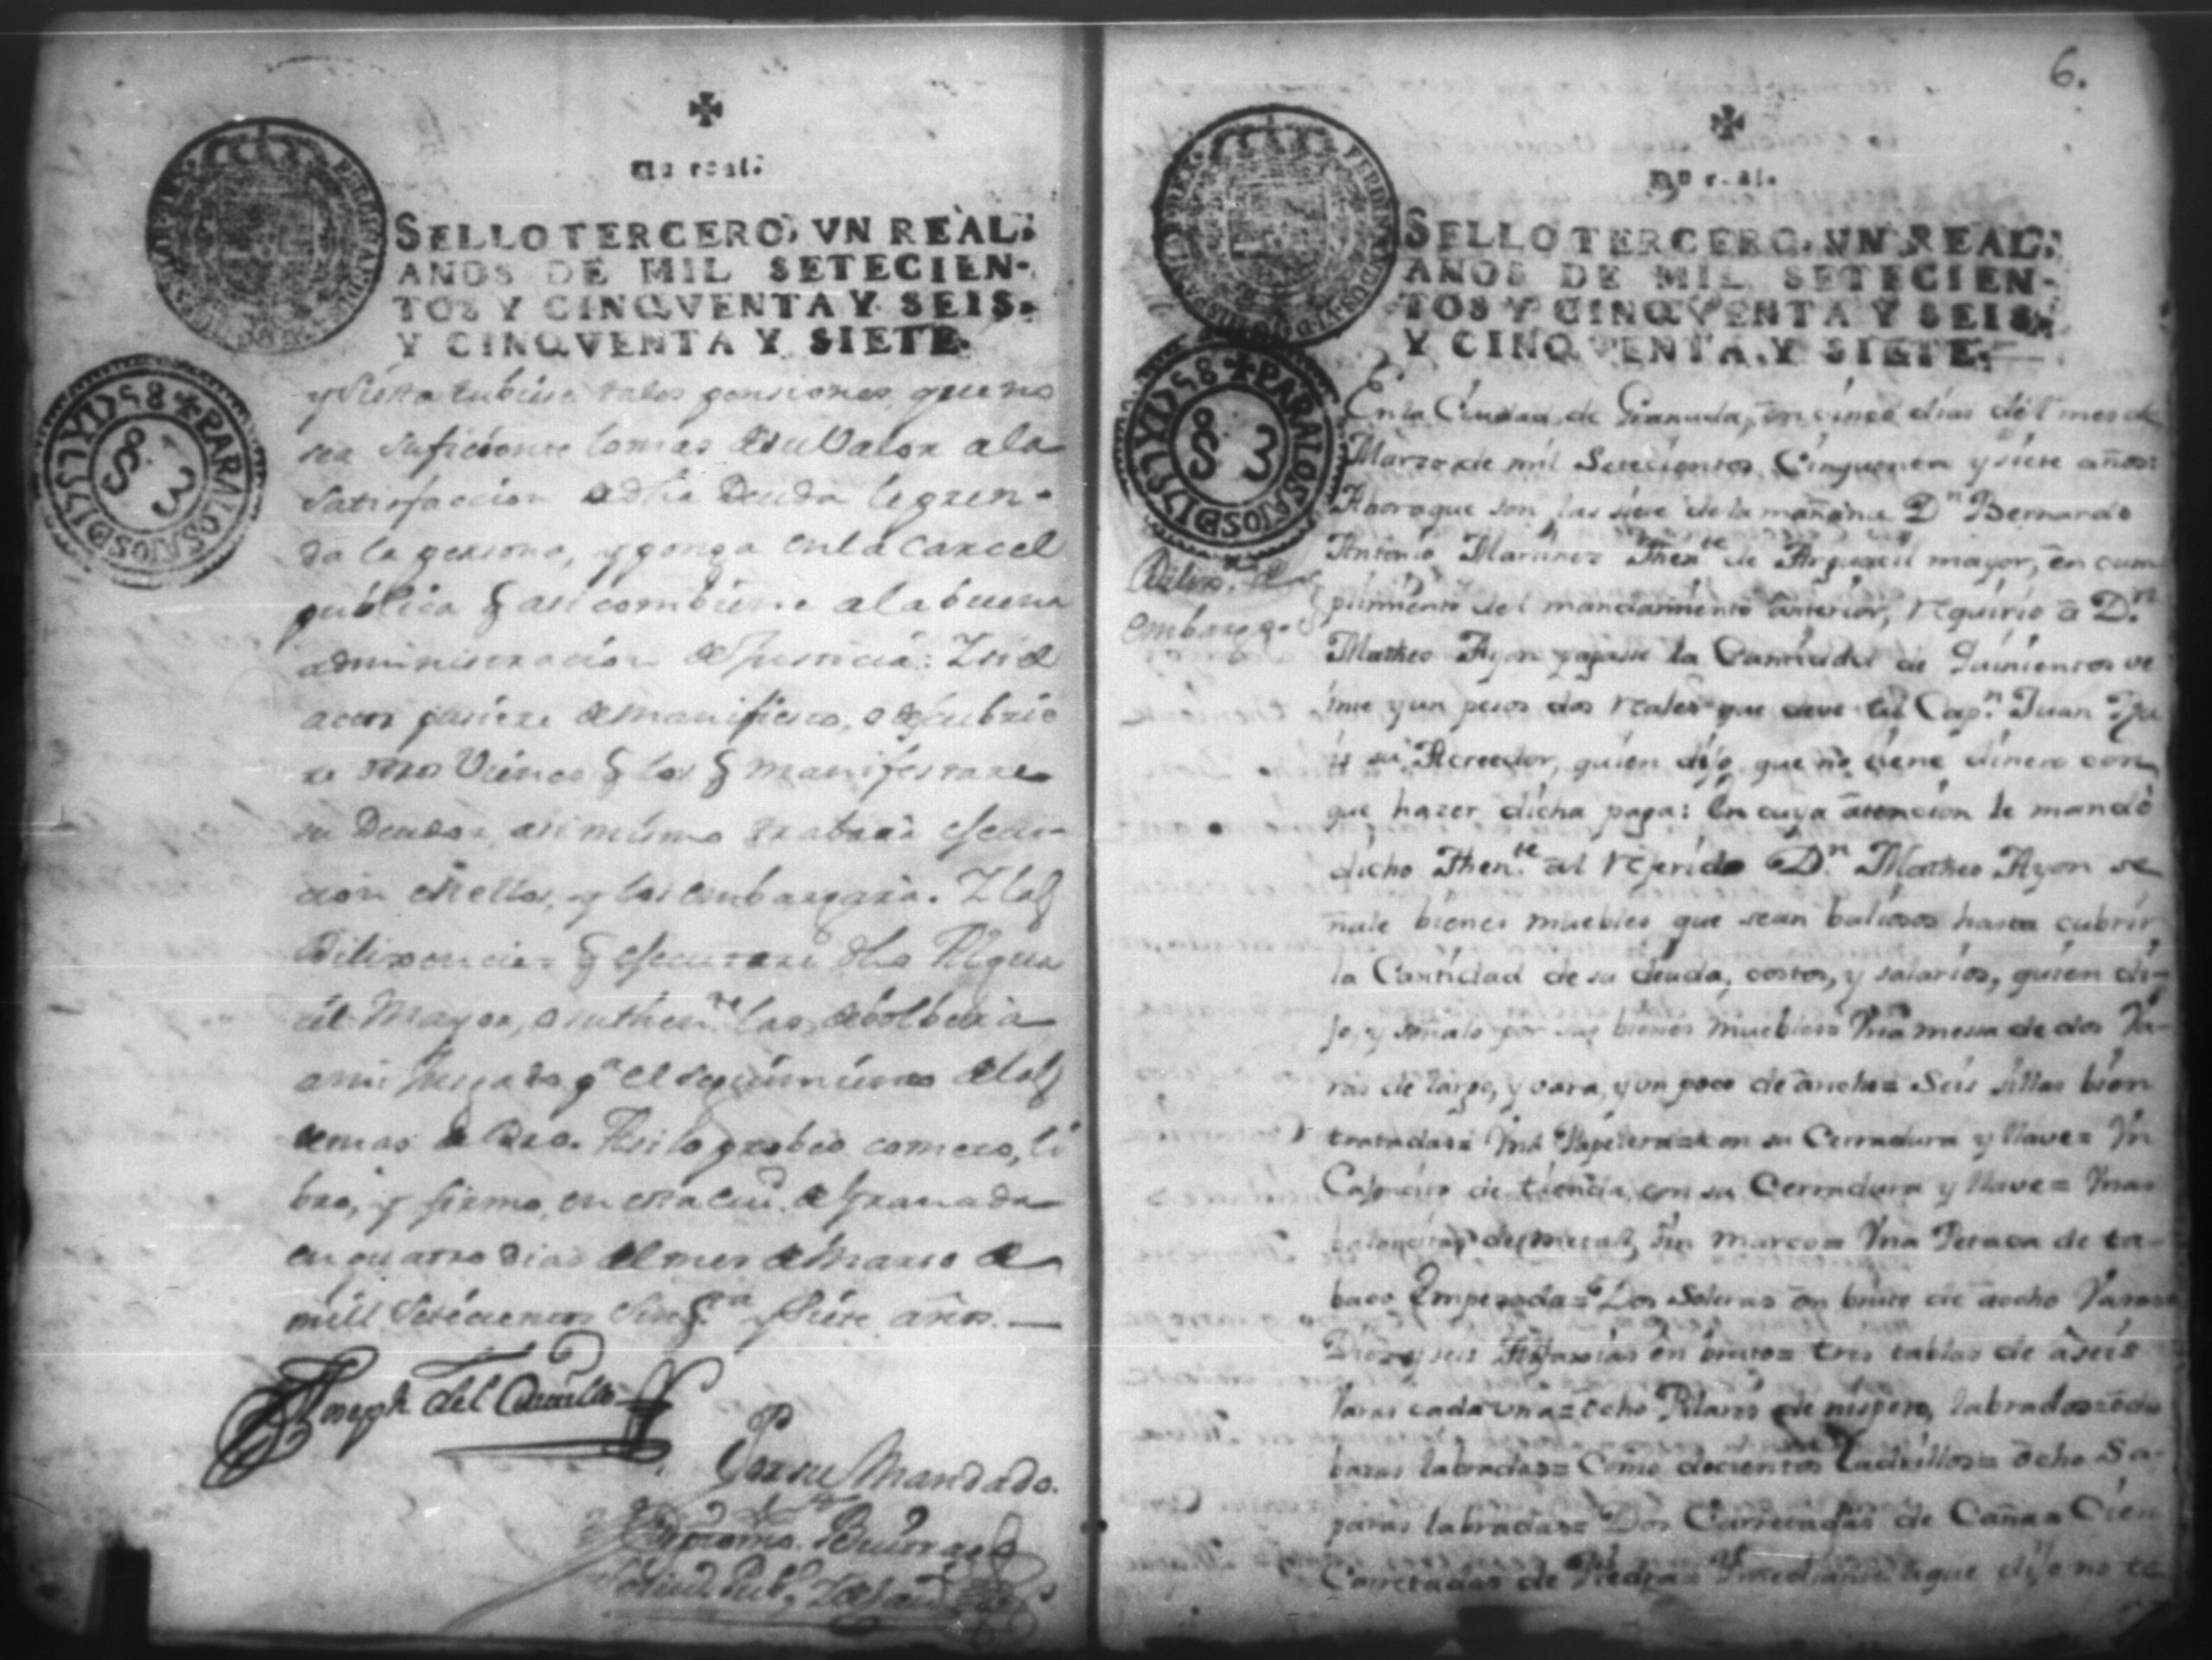 Un real.
SELLO TERCERO, VN REAL:
AÑOS DE MIL SETECIEN-
TOS Y CINQVENTA Y SEIS.
Y CINQVENTA Y SIETE.
PARA LOS AÑOS D 1757 Y 1758
y Siesta tubiese tales pensiones, que no
sea suficiente lo mas de su Valor a la
Satisfaccion de dha Deuda le pren-
da la persona, y ponga en la carcel
publica q asi combiene a la buena
administracion de Justicia: Y si el
acreedor
re otros Vienes q los q manifestare
su Deudor, asi mismo trabara execu-
cion en ellos, y los embargara. Y las
Dilixencias q executare dho Algua
cil Mayor, o su then.te las debolberá
a mi Juzgado p.a el seguimiento de las
demas de Dro. Asi lo probeo, cometo, li
bro, y firmo, en esta ciu.d de Granada
en quatro dias del mes de Marzo de
mill Setecientos Sinq.ta y Siete años.
Joseph del Castillo
Por su Mandado.
6.
Un real.
SELLO TERCERO, VN REAL:
AÑOS DE MIL SETECIEN-
TOS Y CINQVENTA Y SEIS
Y CINQVENTA Y SIETE.
PARA LOS AÑOS D 1757 Y 1758
Dilix.a de
embargo
En la Ciudad de Granada, en cinco dias del mes de
Marzo de mil Setecientos Cinquenta y siete años:
Ahora que son las siete de la mañana Dn Bernardo
Antonio Martinez Then.te de Alguacil mayor, en cum
plimiento del mandamiento anterior, requirio a D.n
Matheo Ayon pagasse la Cantidad de Quinientos ve
inte y un pesos dos reales que deve al Cap.n Juan
su Acreedor, quien dijo que no tiene dinero con
que hazer dicha paga: En cuya atencion le mandó
dicho Then.te al referido D.n Matheo Ayon se
ñale bienes muebles que sean baliosos hasta cubrir
la Cantidad de su deuda, costos, y salarios, quien di-
jo, y señalo por sus bienes muebles= Una messa de dos Va-
ras de largo, y vara, y un poco de ancho= Seis sillas bien
tratadas= Una Papelera con su Cerradura y llave= Un
Cajoncito de tienda, con su Cerradura y llave= Unas
balancitas de metal, sin marco= Una Petaca de ta-
baco Empezada= Dos Soleras en bruto de aocho Varas
Diez y seis en bruto= tres tablas de aseis
Varas cada una= ocho Pilares de nispero, labrados= ocho
baras labradas= Como docientos Ladrillos= ocho Sa-
patas labradas= Dos Carretadas de Cañas= Cien
Carretadas de Piedra= Y mediante a que dijo no te